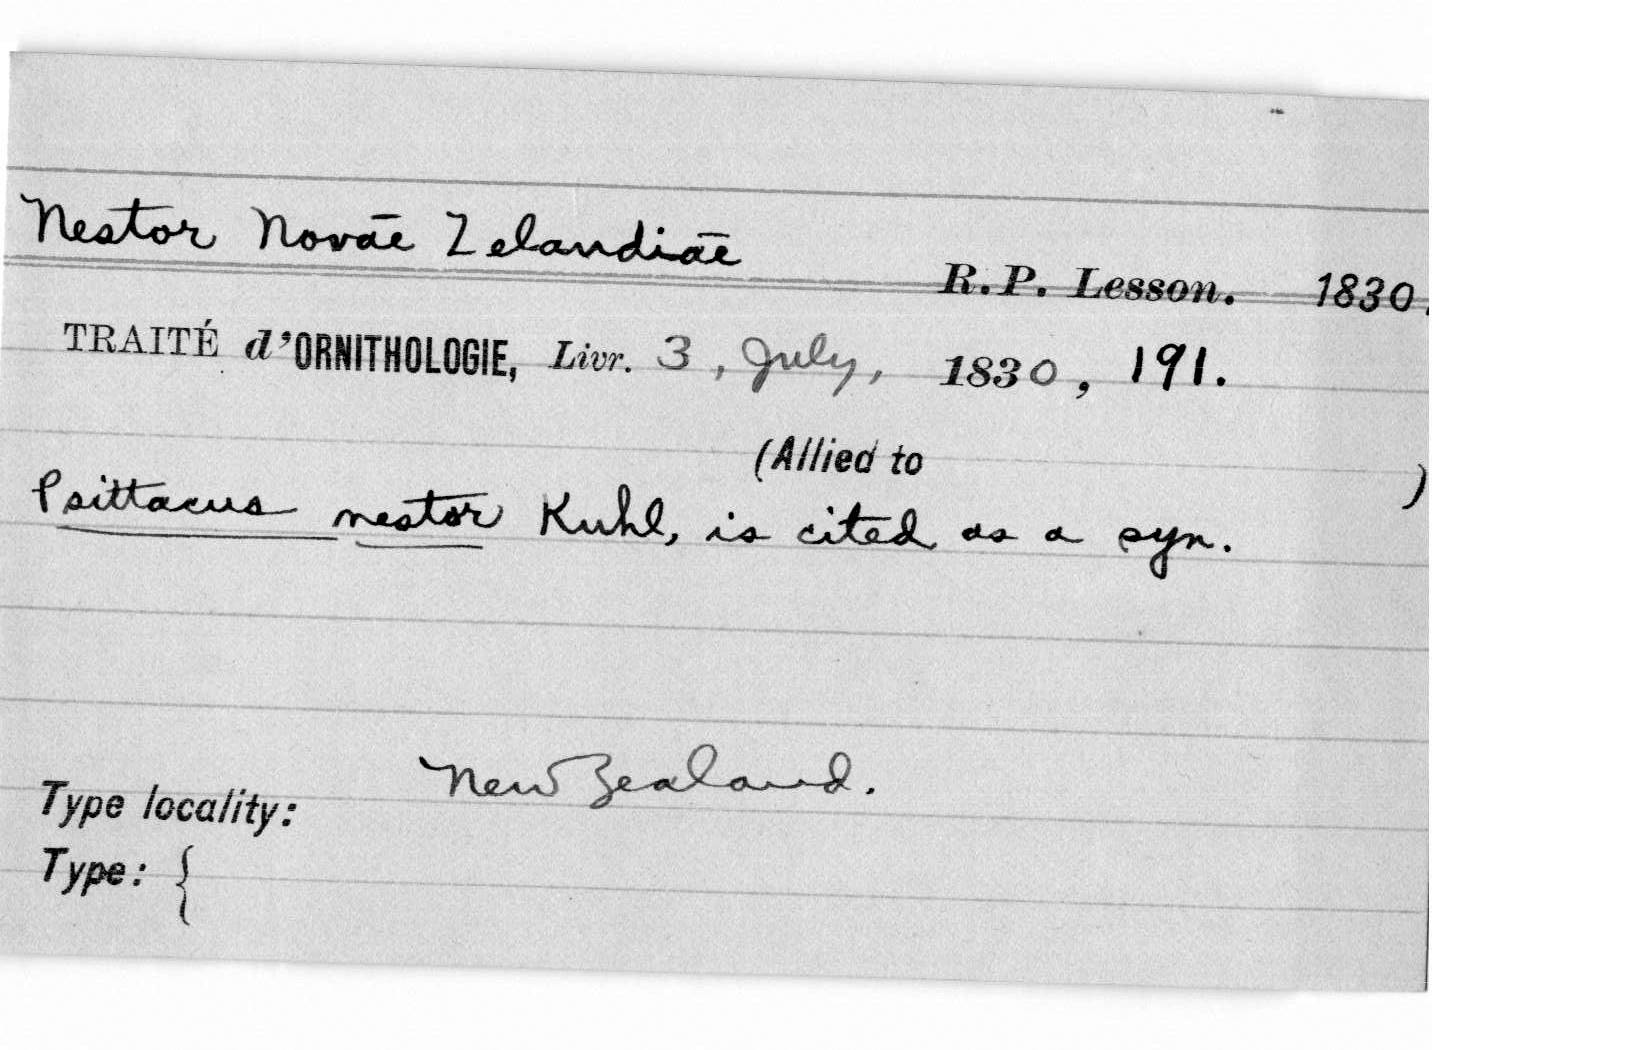 Nestor Novae Zelandiae R.P. Lesson. 1830.
TRAITÉ d'ORNITHOLOGIE, Livr. 3, July, 1830, 191.
(Allied to )
Psittacus nestor Kuhl, is cited as a syn.
New Zealand.
Type locality:
Type: {